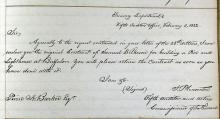 Treasury Department
Fifth Auditor's Office, February 2, 1832.
Sir,
Agreeably to the request contained in your letter of the 28th ultimo, I now
enclose you the original Contract of Samuel for building a Pier and
Lighthouse at Buffalo. You will please return the Contract as soon as you
have done with it.
I am &c
(Signed) S. Pleasonton
Fifth Auditor and acting
Commissioner of the Revenue
Esqr.